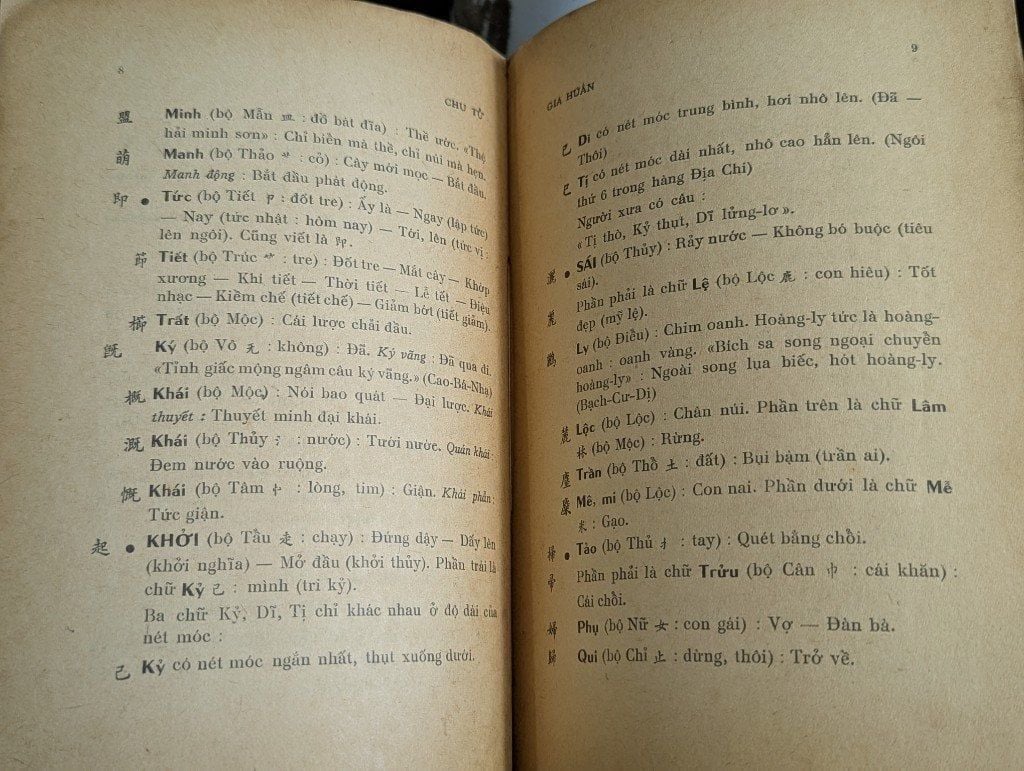 8
CHU TỬ
盟 Minh (bộ Mẫn 皿 : đồ bát đĩa) : Thề ước. «Thệ
hải minh sơn» : Chỉ biển mà thề, chỉ núi mà hẹn.
萌 Manh (bộ Thảo 艹 : cỏ) : Cây mới mọc — Bắt đầu.
Manh động : Bắt đầu phát động.
即 • Tức (bộ Tiết 卩 : đốt tre) : Ấy là — Ngay (lập tức)
— Nay (tức nhật : hôm nay) — Tới, lên (tức vị :
lên ngôi). Cũng viết là 卽.
節 Tiết (bộ Trúc ⺮ : tre) : Đốt tre — Mắt cây — Khớp
xương — Khí tiết — Thời tiết — Lễ tết — Điệu
nhạc — Kiềm chế (tiết chế) — Giảm bớt (tiết giảm).
櫛 Trất (bộ Mộc) : Cái lược chải đầu.
既 Ký (bộ Vô 无 : không) : Đã. Ký vãng : Đã qua đi.
«Tỉnh giấc mộng ngâm câu ký vãng.» (Cao-Bá-Nhạ)
概 Khái (bộ Mộc) : Nói bao quát — Đại lược. Khái
thuyết : Thuyết minh đại khái.
溉 Khái (bộ Thủy 氵 : nước) : Tưới nước. Quán khái :
Đem nước vào ruộng.
慨 Khái (bộ Tâm 忄 : lòng, tim) : Giận. Khái phẫn :
Tức giận.
起 • KHỞI (bộ Tẩu 走 : chạy) : Đứng dậy — Dấy lên
(khởi nghĩa) — Mở đầu (khởi thủy). Phần trái là
chữ Kỷ 己 : mình (tri kỷ).
Ba chữ Kỷ, Dĩ, Tị chỉ khác nhau ở độ dài của
nét móc :
己 Kỷ có nét móc ngắn nhất, thụt xuống dưới.
9
GIA HUẤN
已 Dĩ có nét móc trung bình, hơi nhô lên. (Đã —
Thôi)
巳 Tị có nét móc dài nhất, nhô cao hẳn lên. (Ngôi
thứ 6 trong hàng Địa Chi)
Người xưa có câu :
«Tị thò, Kỷ thụt, Dĩ lửng-lơ».
灑 • SÁI (bộ Thủy) : Rảy nước — Không bó buộc (tiêu
sái).
麗 Phần phải là chữ Lệ (bộ Lộc 鹿 : con hiêu) : Tốt
đẹp (mỹ lệ).
鸝 Ly (bộ Điểu) : Chim oanh. Hoàng-ly tức là hoàng-
oanh : oanh vàng. «Bích sa song ngoại chuyển
hoàng-ly» : Ngoài song lụa biếc, hót hoàng-ly.
(Bạch-Cư-Dị)
麓 Lộc (bộ Lộc) : Chân núi. Phần trên là chữ Lâm
林 (bộ Mộc) : Rừng.
塵 Trần (bộ Thổ 土 : đất) : Bụi bậm (trần ai).
麋 Mê, mi (bộ Lộc) : Con nai. Phần dưới là chữ Mễ
米 : Gạo.
掃 • Tảo (bộ Thủ 扌 : tay) : Quét bằng chổi.
帚 Phần phải là chữ Trửu (bộ Cân 巾 : cái khăn) :
Cái chổi.
婦 Phụ (bộ Nữ 女 : con gái) : Vợ — Đàn bà.
歸 Qui (bộ Chỉ 止 : dừng, thôi) : Trở về.